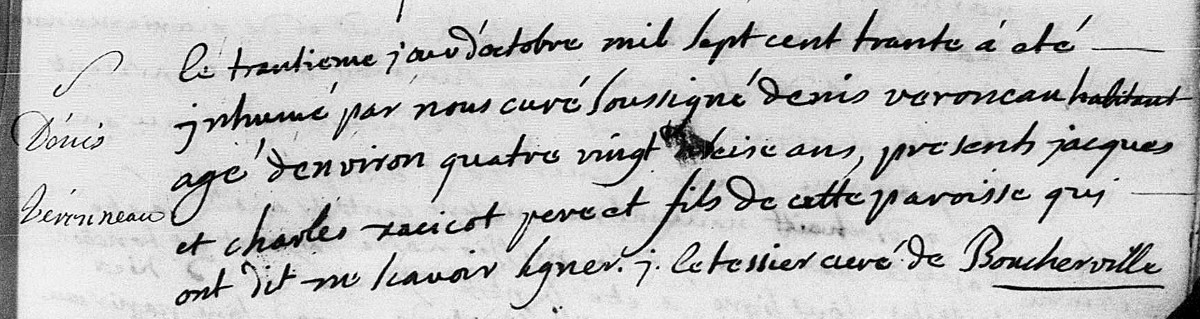 le trantieme jour d'octobre mil sept cent trante à eté
S
jnhumé par nous curé soussigné denis veronceau habitant
Dénis
agé d'environ quatre vingt treise ans, presents jacques
Véronneau
et charles racicot pere et fils de cette paroisse qui
ont dit ne scavoir signer. j. letessier curé de Boucherville